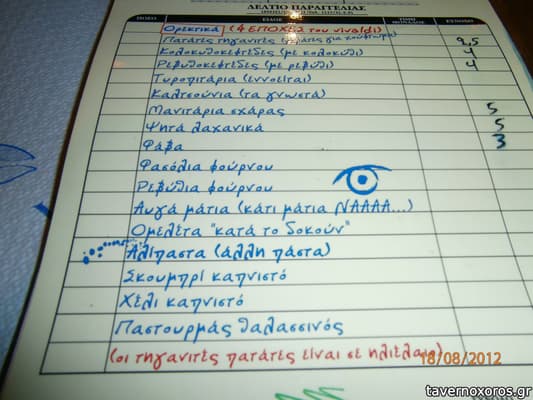 ΔΕΛΤΙΟ ΠΑΡΑΓΓΕΛΙΑΣ
ΠΟΣΟ ΕΙΔΟΣ ΤΙΜΗ ΜΟΝΑΔΟΣ ΣΥΝΟΛΟ
Ορεκτικά (4 ΕΠΟΧΕΣ του vivaldi)
Πατάτες τηγανιτές για 2,5
Κολοκυθοκεφτέδες (με κολοκύθι) 4
Ρεβυθοκεφτέδες (με ρεβύθι) 4
Τυροπιτάρια (εννοείται)
Καλτσούνια (τα γνωστά)
Μανιτάρια σχάρας 5
Ψητά λαχανικά 5
Φάβα 3
Φασόλια φούρνου
Ρεβύθια φούρνου
Αυγά μάτια (κάτι μάτια ΝΑΑΑΑ...)
Ομελέτα "κατά το δοκούν"
Αλίπαστα (άλλη πάστα)
Σκουμπρί καπνιστό
Χέλι καπνιστό
Παστουρμάς θαλασσινός
(οι τηγανιτές πατάτες είναι σε ηλιέλαιο)
18/08/2012
tavernoxoros.gr